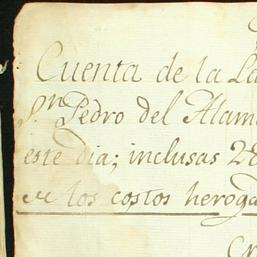 Cuenta de la La
Sn. Pedro del Alam
este dia; inclusas 28
los costos heroga
Cr